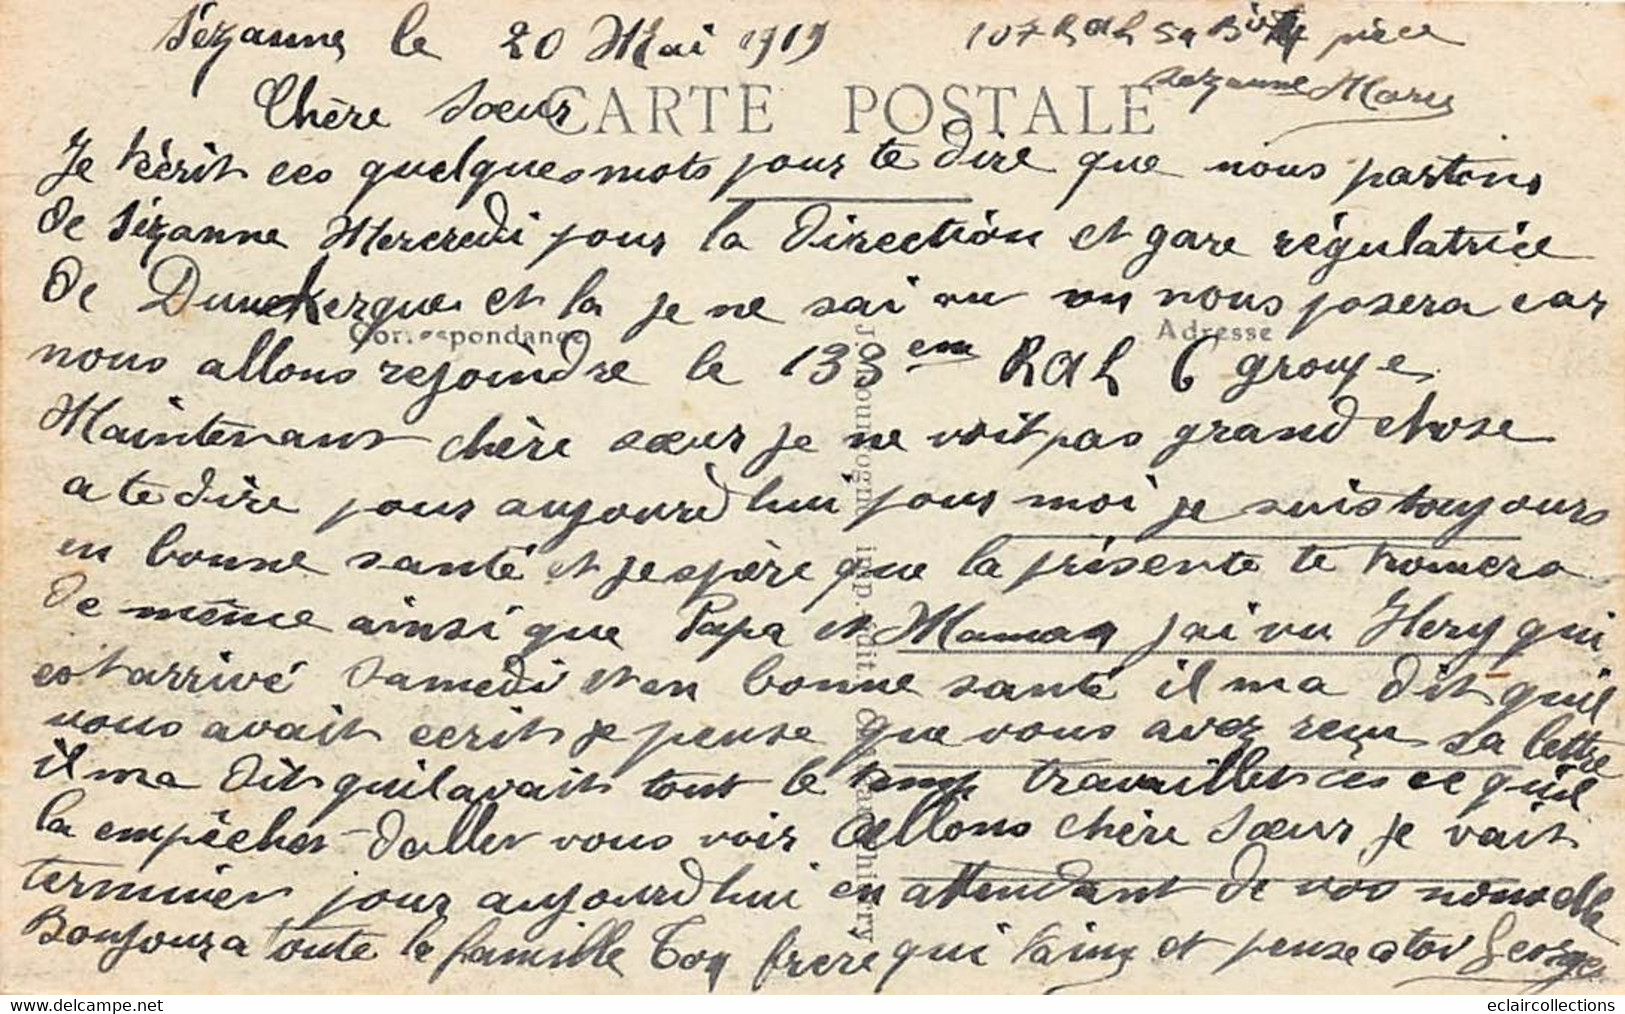 Sézanne le 20 Mai 1919
107 RAL 5a Bie pièce
Sezanne Marne
Chère Sœur
CARTE POSTALE
Je técrit ces quelques mots pour te dire que nous partons
de Sézanne Mercredi pour la direction et gare régulatrice
de Dunckerque et la je ne sai ou on nous posera car
Correspondance
Adresse
nous allons rejoindre le 133em RAL 6 groupe
Maintenant chère sœur je ne voit pas grand chose
a te dire pour aujourd hui pour moi je suis toujours
en bonne santé et jespère que la présente te trouvera
de même ainsi que Papa et Maman jai vu Hery qui
est arrivé Samedi et en bonne santé il ma dit quil
vous avait ecrit je pense que vous avez reçu sa lettre
il ma dit quil avait tout le temp travailler ces ce quil
la empêcher daller vous voir Allons chère Sœur je vait
terminer pour aujourdhui en attendant de vos nouvelle
Bonjour a toute la famille Ton frère qui taime et pense a toi Georges
eclaircollections